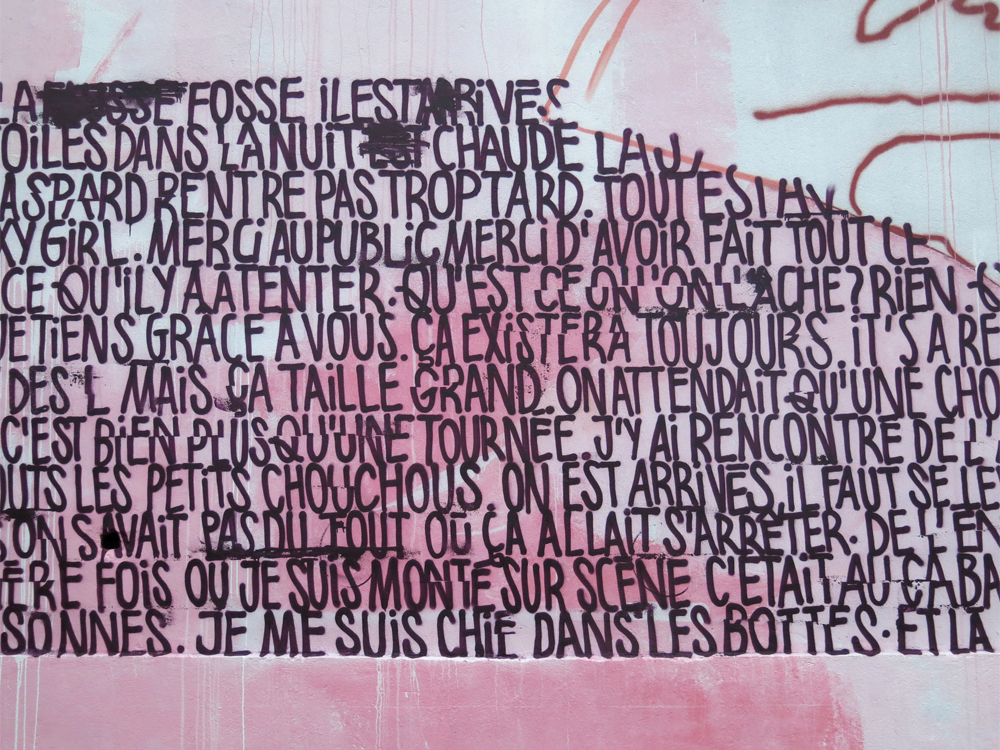 LA FOSSE iL EST ARRiVÉS
TOiLES DANS LA NUIT EST CHAUDE LA
ASPARD RENTRE PAS TROP TARD. TOUT EST
XY GiRL. MERCi AU PUBLiC MERCi D'AVOiR FAiT TOUT CE
CE QU'iL Y A À TENTER. QU'EST CE QU'ON LÂCHE? RiEN
TiENS GRACE À VOUS. ÇA EXiSTERA TOUJOURS. iT'S A RE
DES L MAiS ÇA TAiLLE GRAND. ON ATTENDAiT QU'UNE CHO
C'EST BiEN PLUS QU'UNE TOURNÉE. J'Y Ai RENCONTRÉ DE L'
OUTS LES PETiTS CHOUCHOUS. ON EST ARRiVÉS, iL FAUT SE LE
SONS AVAiT PAS DU TOUT OÙ ÇA ALLAiT S'ARRÊTER. DE L'EN
ÈRE FOiS OÙ JE SUiS MONTÉ SUR SCÈNE C'ÉTAiT AU CABA
SONNES. JE ME SUiS CHiÉ DANS LES BOTTES. ET LA